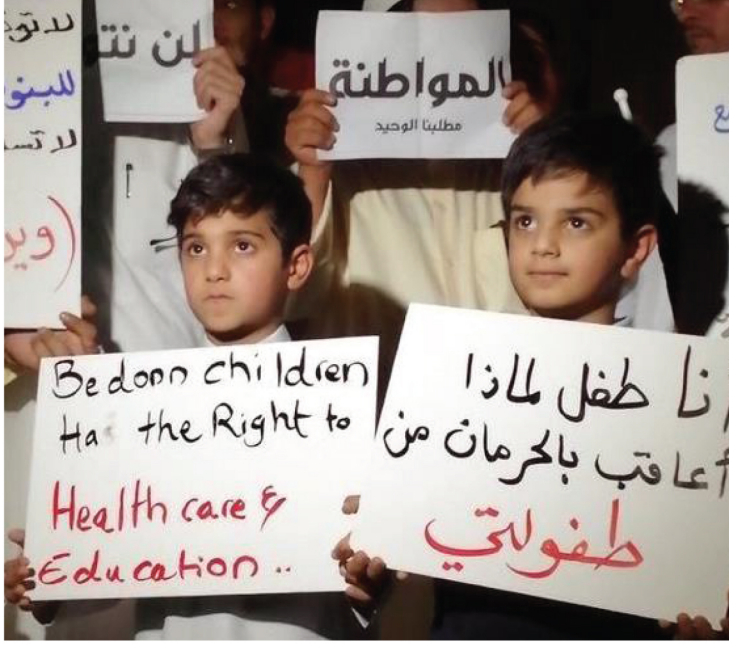 لن
المواطنة
مطلبنا الوحيد
Bedoon children
Has the Right to
Health care &
Education ..
أنا طفل لماذا
أعاقب بالحرمان من
طفولتي